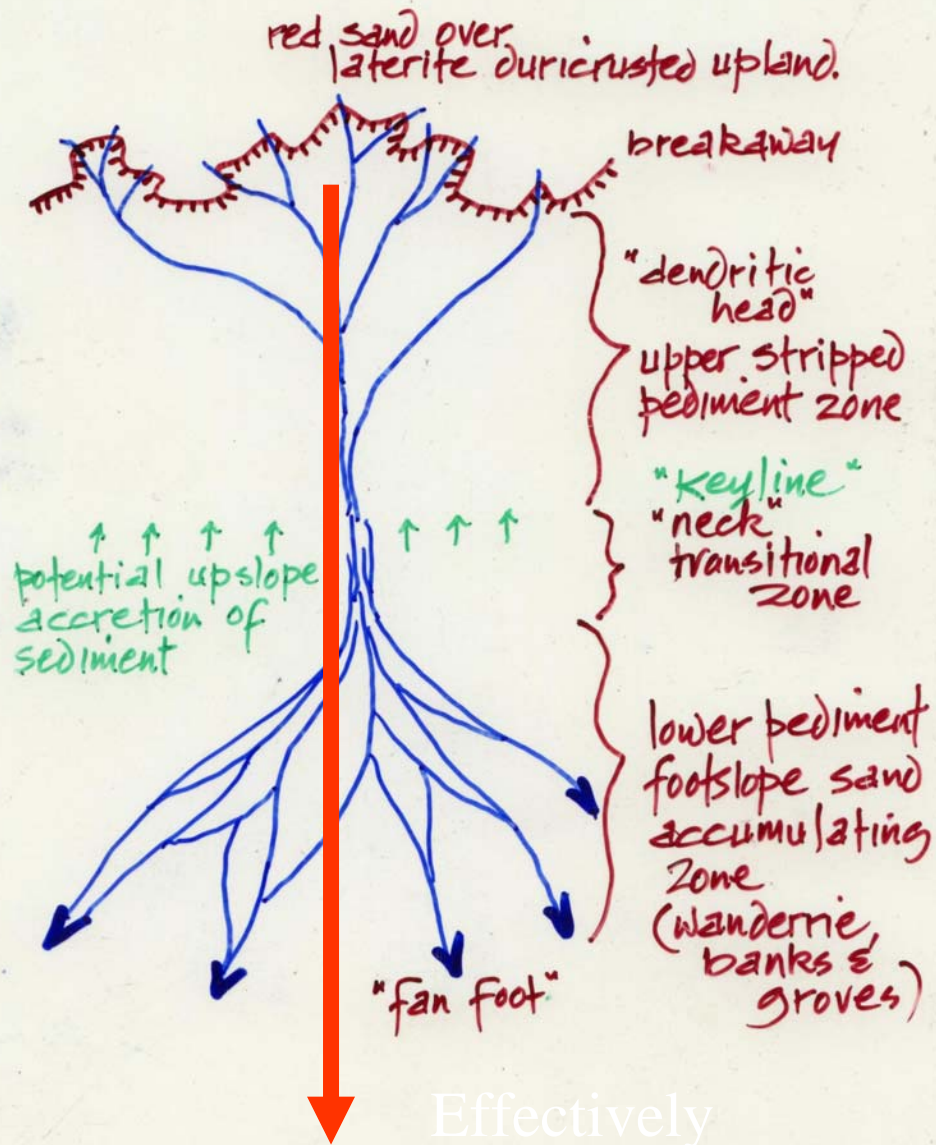 red sand over
laterite duricrusted upland.
breakaway
"dendritic
head"
upper stripped
pediment zone
"keyline"
"neck"
transitional
zone
potential upslope
accretion of
sediment
lower pediment
footslope sand
accumulating
zone
(wanderrie,
banks &
groves)
"fan foot"
Effectively